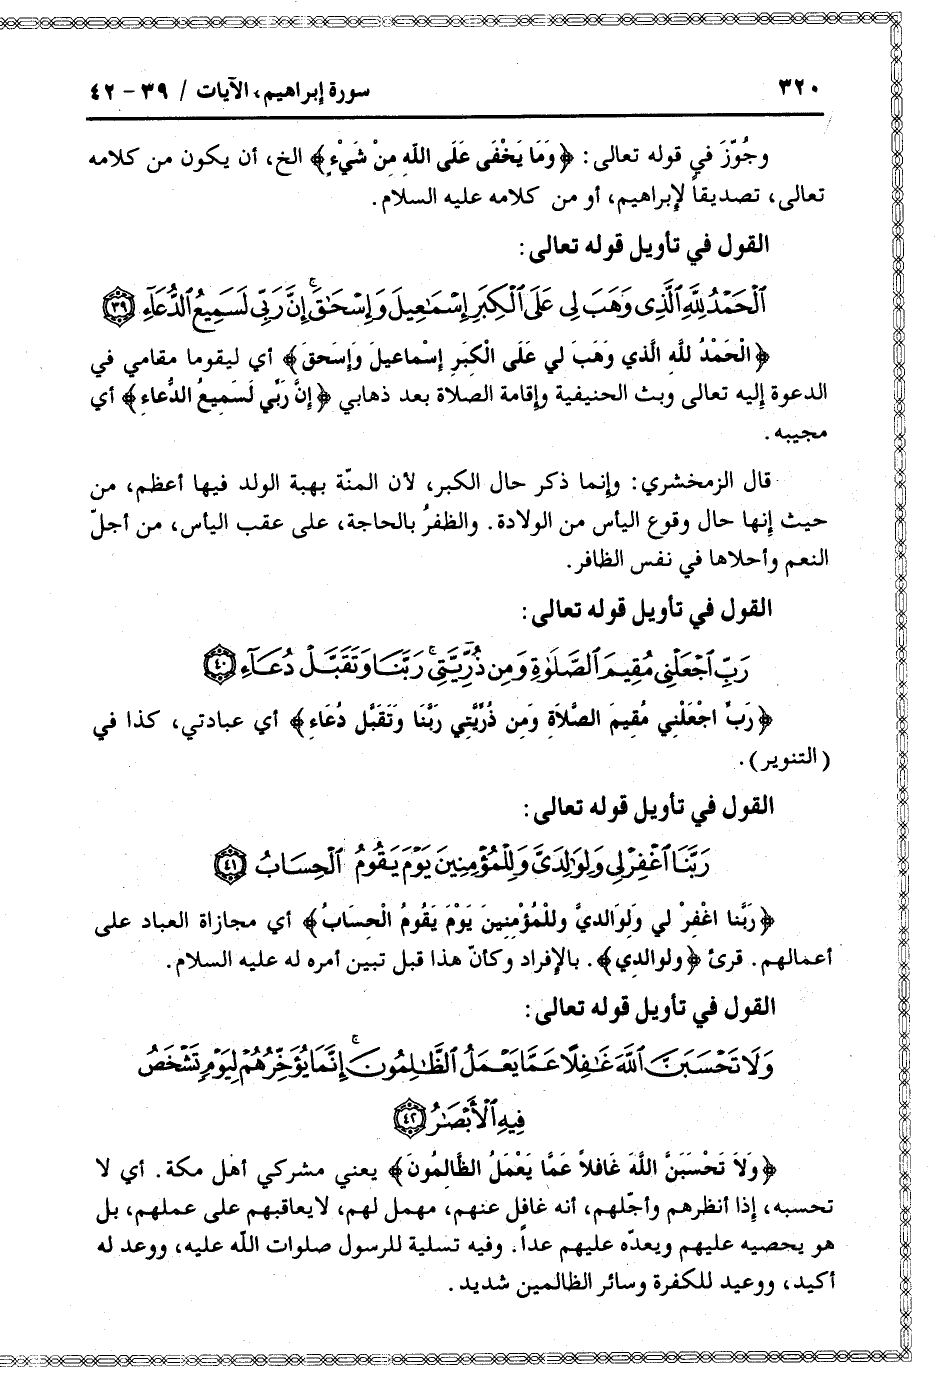 ٣٢٠
سورة إبراهيم، الآيات / ٣٩ – ٤٢
وجُوّزَ في قوله تعالى: ﴿وَمَا يَخْفَى عَلَى اللَّهِ مِنْ شَيْءٍ﴾ الخ، أن يكون من كلامه
تعالى، تصديقاً لإبراهيم، أو من كلامه عليه السلام.
القول في تأويل قوله تعالى:
ٱلْحَمْدُ لِلَّهِ ٱلَّذِى وَهَبَ لِى عَلَى ٱلْكِبَرِ إِسْمَٰعِيلَ وَإِسْحَٰقَۚ إِنَّ رَبِّى لَسَمِيعُ ٱلدُّعَآءِ ﴿٣٩﴾
﴿الْحَمْدُ للَّهِ الَّذي وَهَبَ لي عَلَى الْكِبَرِ إسْماعيلَ وَإسَحقَ﴾ أي ليقوما مقامي في
الدعوة إليه تعالى وبث الحنيفية وإقامة الصلاة بعد ذهابي ﴿إنَّ رَبِّي لَسَميعُ الدُّعاءِ﴾ أي
مجيبه.
قال الزمخشري: وإنما ذكر حال الكبر، لأن المنّة بهبة الولد فيها أعظم، من
حيث إنها حال وقوع اليأس من الولادة. والظفرُ بالحاجة، على عقب اليأس، من أجلّ
النعم وأحلاها في نفس الظافر.
القول في تأويل قوله تعالى:
رَبِّ ٱجْعَلْنِى مُقِيمَ ٱلصَّلَوٰةِ وَمِن ذُرِّيَّتِىۚ رَبَّنَا وَتَقَبَّلْ دُعَآءِ ﴿٤٠﴾
﴿رَبِّ اجْعَلْنِي مُقِيمَ الصَّلاَةِ وَمِن ذُرِّيَّتِي رَبَّنَا وَتَقَبَّل دُعَاءِ﴾ أي عبادتي، كذا في
(التنوير).
القول في تأويل قوله تعالى:
رَبَّنَا ٱغْفِرْ لِى وَلِوَٰلِدَىَّ وَلِلْمُؤْمِنِينَ يَوْمَ يَقُومُ ٱلْحِسَابُ ﴿٤١﴾
﴿رَبَّنا اغْفِرْ لي وَلِوَالديَّ وللْمُؤْمِنينَ يَوْمَ يَقُومُ الْحسَابُ﴾ أي مجازاة العباد على
أعمالهم. قرئ ﴿ولوالدي﴾. بالإفراد وكأنّ هذا قبل تبين أمره له عليه السلام.
القول في تأويل قوله تعالى:
وَلَا تَحْسَبَنَّ ٱللَّهَ غَٰفِلًا عَمَّا يَعْمَلُ ٱلظَّٰلِمُونَۚ إِنَّمَا يُؤَخِّرُهُمْ لِيَوْمٍ تَشْخَصُ
فِيهِ ٱلْأَبْصَٰرُ ﴿٤٢﴾
﴿وَلاَ تَحْسَبَنَّ اللَّهَ غَافلاً عَمَّا يَعْمَلُ الظَّالمُونَ﴾ يعني مشركي أهل مكة. أي لا
تحسبه، إذا أنظرهم وأجّلهم، أنه غافل عنهم، مهمل لهم، لا يعاقبهم على عملهم، بل
هو يحصيه عليهم ويعدّه عليهم عداً. وفيه تسلية للرسول صلوات اللّه عليه، ووعد له
أكيد، ووعيد للكفرة وسائر الظالمين شديد.